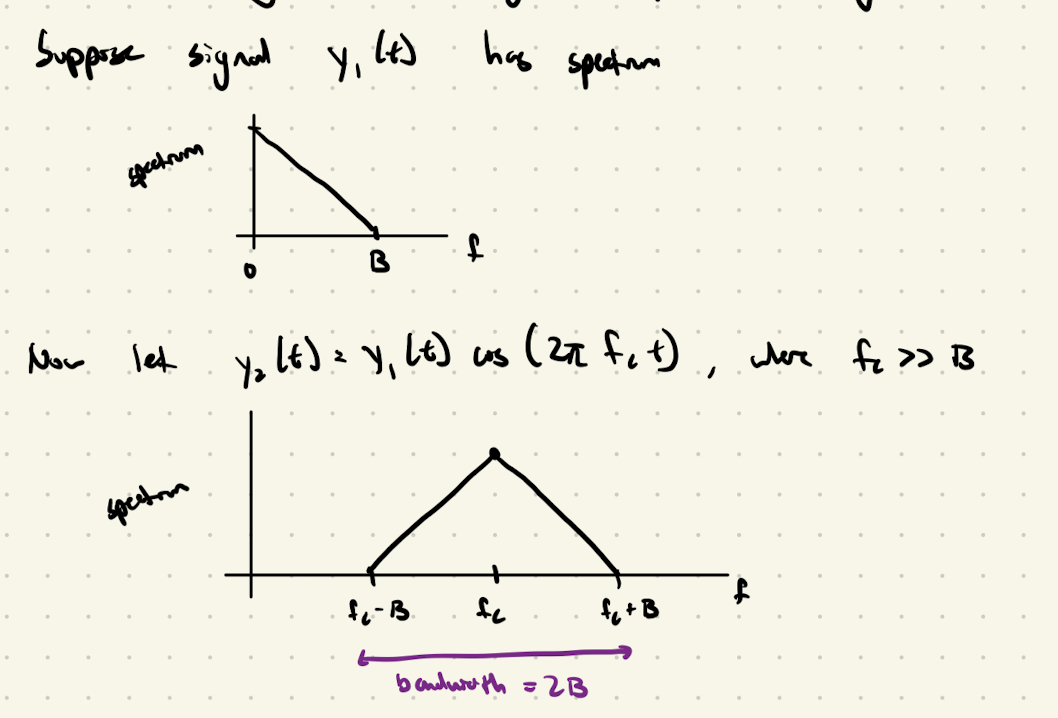 Suppose signal y₁(t) has spectrum
spectrum
0 B f
Now let y₂(t) = y₁(t) cos(2π f_c t), where f_c >> B
spectrum
f_c-B f_c f_c+B f
bandwidth = 2B